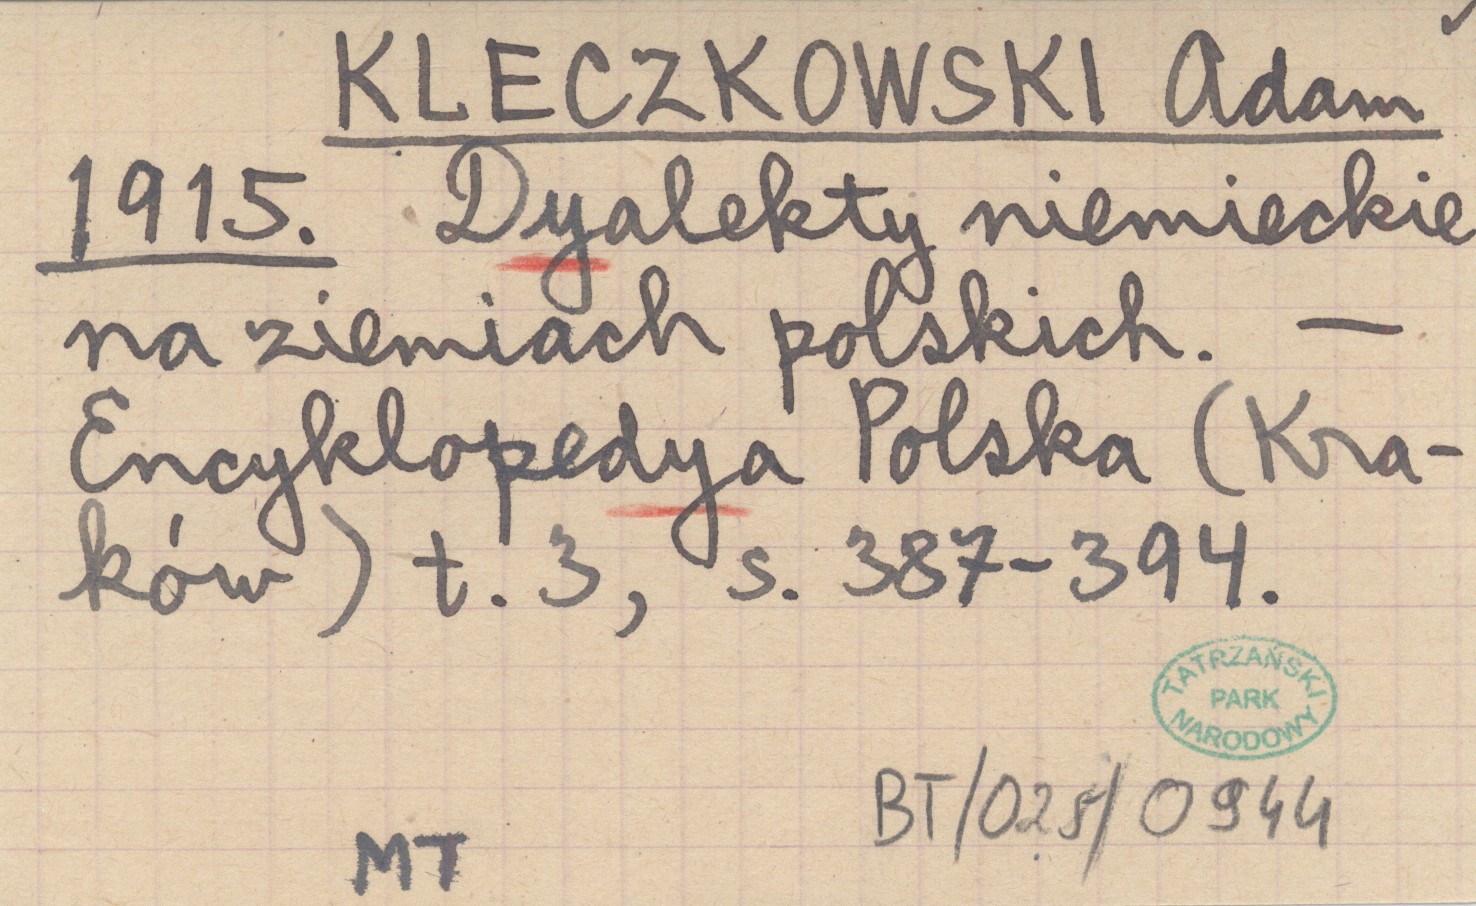 KLECZKOWSKI Adam
1915. Dyalekty niemieckie
na ziemiach polskich. —
Encyklopedya Polska (Kra-
ków) t. 3, s. 387-394.
TATRZAŃSKI
PARK
NARODOWY
BT/025/0944
MT